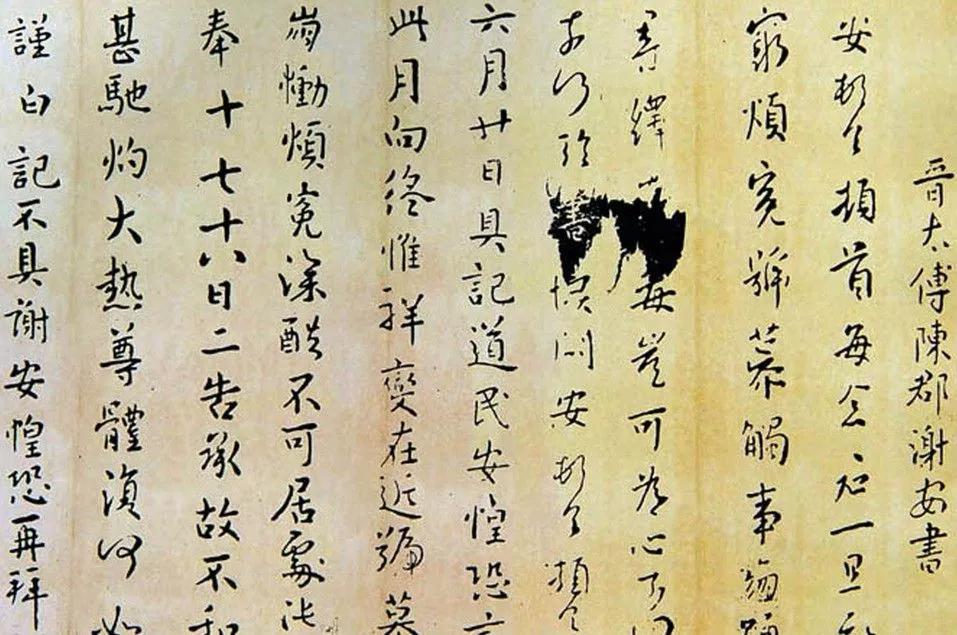 晉太傅陳郡謝安書
安頓首頓首每念君一旦
窮煩冤號慕觸事
尋繹 豈可為心
奈何 安頓首頓首
六月廿日具記道民安惶恐言
此月向終惟祥變在近號慕
崩慟煩冤深酷不可居處
奉十七十八日二告承故不和
甚馳灼大熱尊體復何如
謹白記不具謝安惶恐再拜